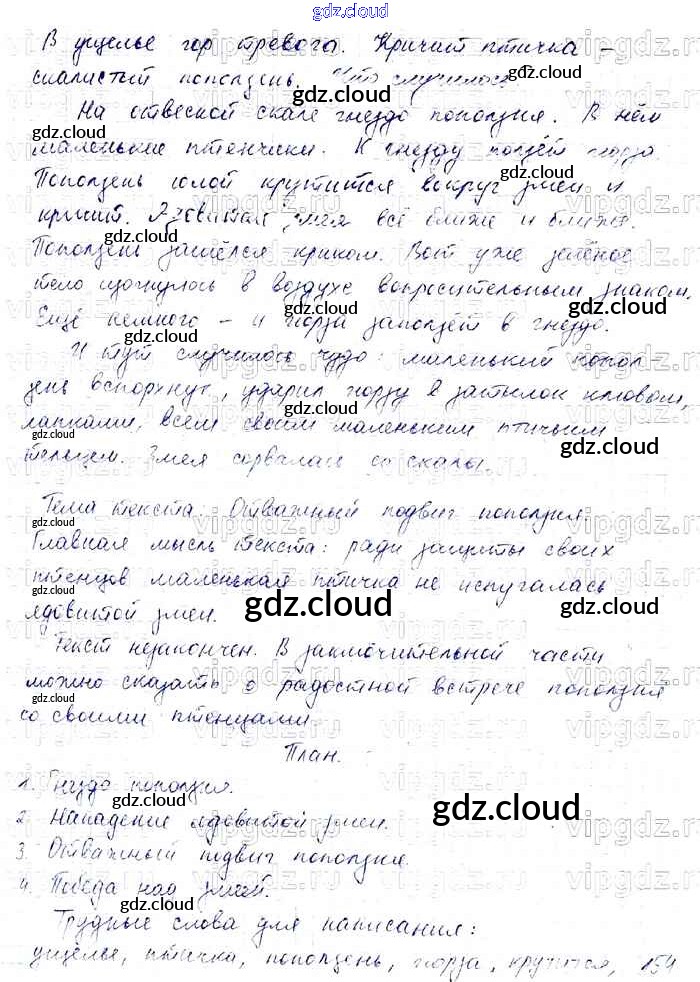 gdz.cloud
В ущелье гор тревога. Кричит птичка –
скалистый поползень. Что случилось?
На отвесной скале гнездо поползня. В нём
маленькие птенчики. К гнезду ползёт гюрза.
Поползень юлой крутится вокруг змеи и
кричит. Ядовитая змея всё ближе и ближе.
Поползень зашёлся криком. Вот уже зелёное
тело изогнулось в воздухе вопросительным знаком.
Ещё немного – и гюрза заползёт в гнездо.
И тут случилось чудо: маленький попол-
зень вспорхнул, ударил гюрзу в затылок клювом,
лапками, всем своим маленьким птичьим
тельцем. Змея сорвалась со скалы.
Тема текста: Отважный подвиг поползня.
Главная мысль текста: ради защиты своих
птенцов маленькая птичка не испугалась
ядовитой змеи.
Текст незакончен. В заключительной части
можно сказать о радостной встрече поползня
со своими птенцами.
План.
1. Гнездо поползня.
2. Нападение ядовитой змеи.
3. Отважный подвиг поползня.
4. Победа над змеёй.
Трудные слова для написания:
ущелье, птичка, поползень, гюрза, крутится, 154